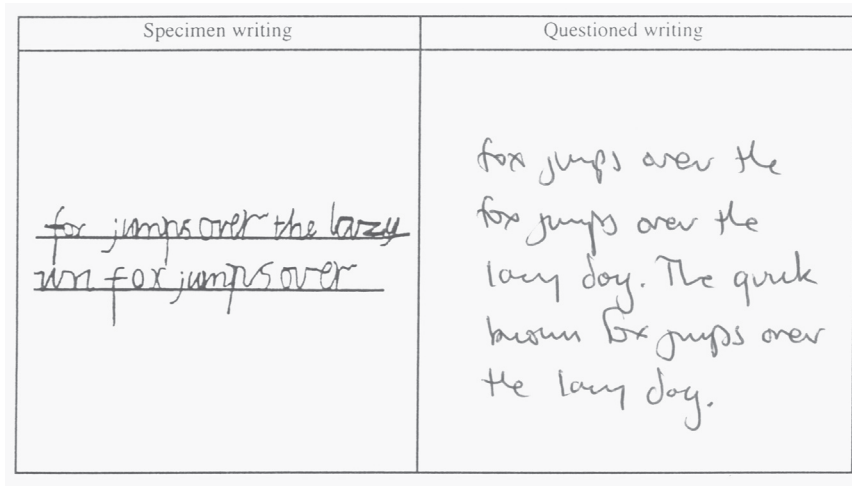 Specimen writing
Questioned writing
fox jumps over the lazy
wn fox jumps over
fox jumps over the
fox jumps over the
lazy dog. The quick
brown fox jumps over
the lazy dog.